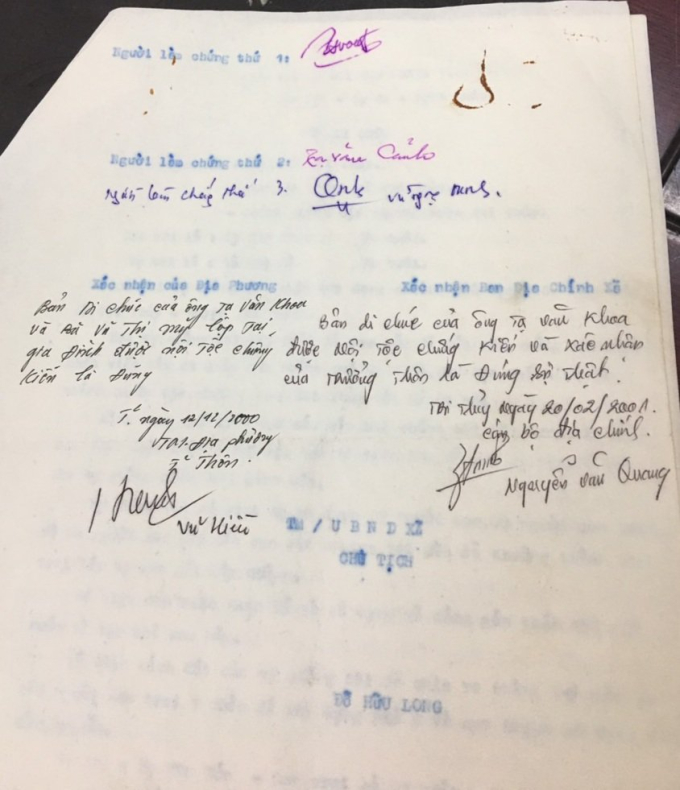 Người làm chứng thứ 1:
Người làm chứng thứ 2: Tạ Văn Cảnh
Người làm chứng thứ 3.
Xác nhận của Địa Phương
Bản Di chúc của ông Tạ Văn Khoa
và bà Vũ Thị Mỹ lập tại
gia Đình được nội Tộc chứng
Kiến là Đúng
T. ngày 12/12/2000
TM. Địa phương
T. Thôn.
Vũ Hiền
Xác nhận Ban Địa Chính Xã
Bản di chúc của ông Tạ Văn Khoa
được Nội Tộc chứng Kiến và xác nhận
của Trưởng Thôn là Đúng sự thật.
ngày 20/02/2001.
cán bộ địa chính.
Nguyễn Văn Quang
TM / U B N D XÃ
CHỦ TỊCH
ĐỖ HỮU LONG